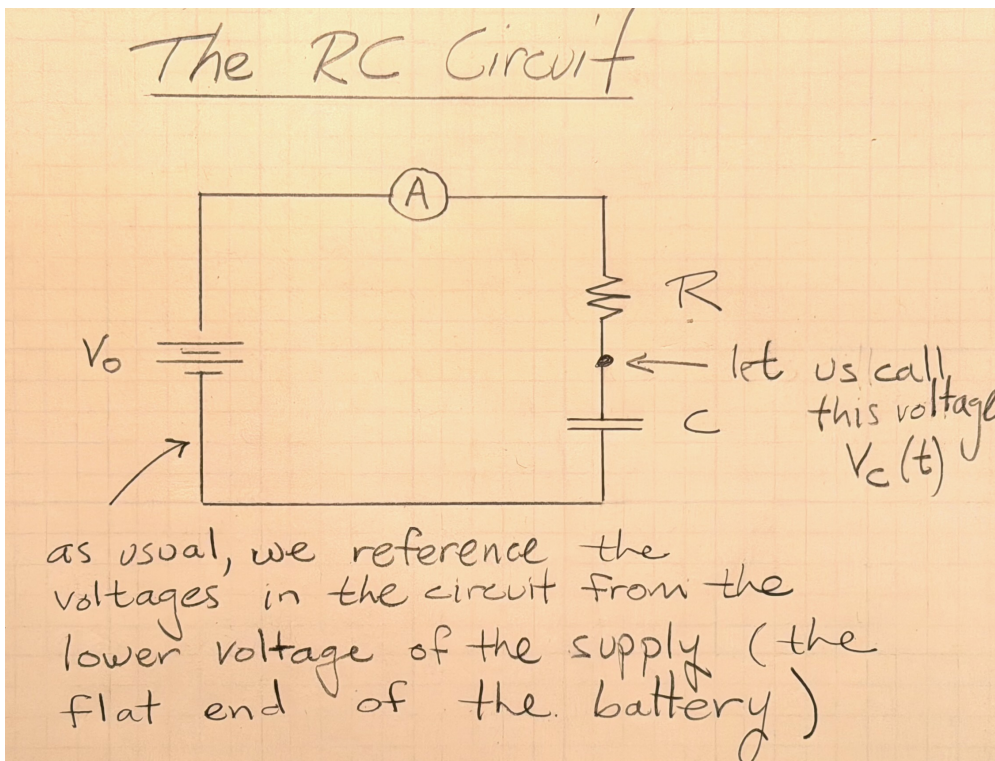 The RC Circuit
A
R
V₀
let us call
this voltage
C
Vc(t)
as usual, we reference the
voltages in the circuit from the
lower voltage of the supply (the
flat end of the battery)